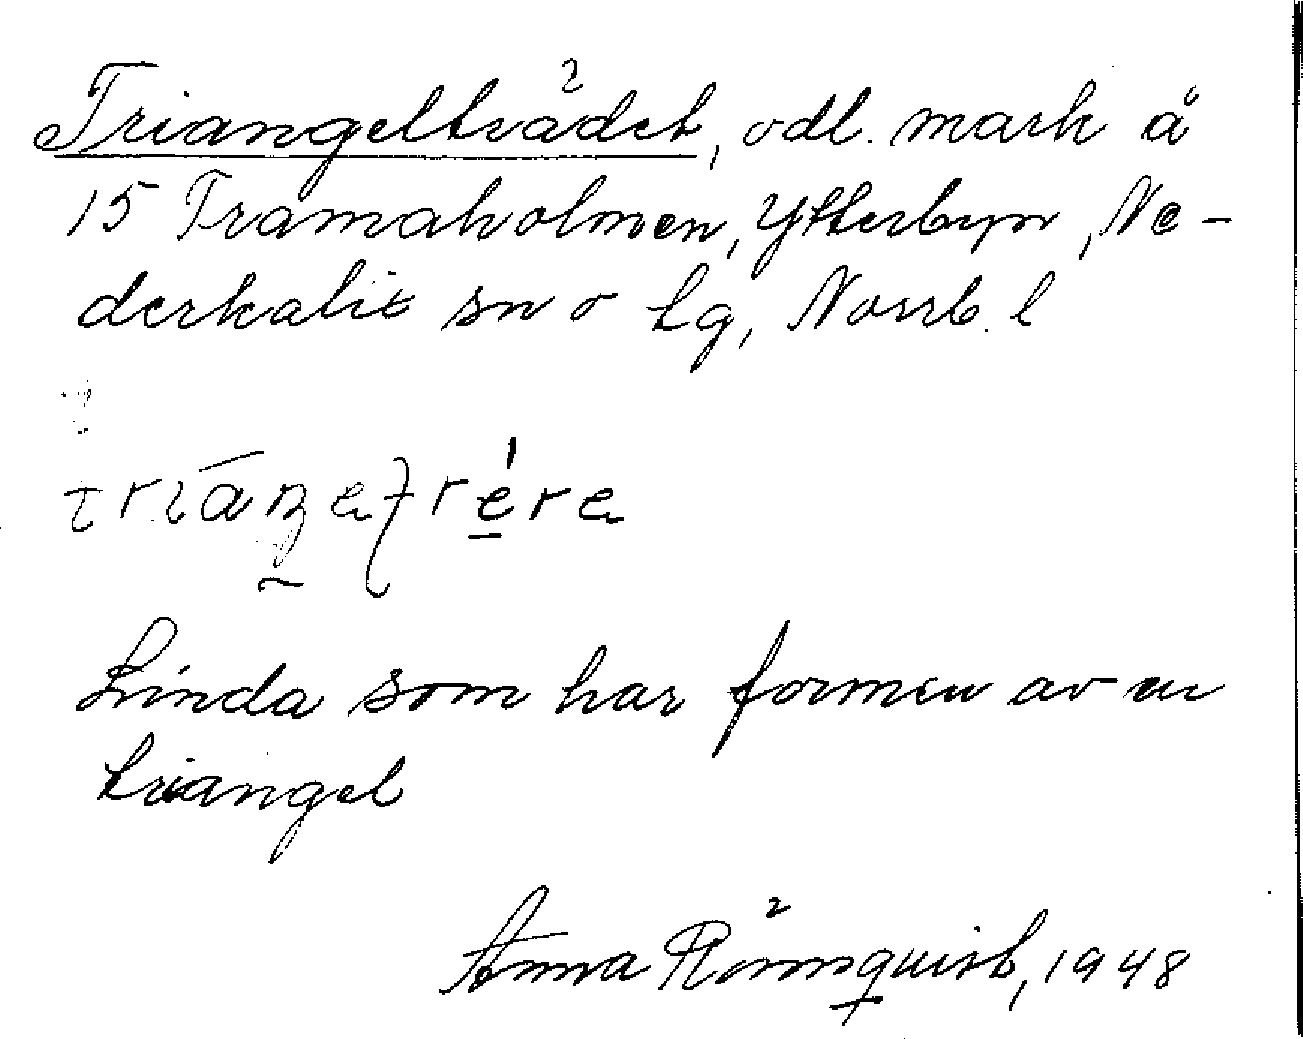 Triangelträdet, odl. mark å
15 Tramaholmen, Ytterbyn, Ne-
derkalix sn o Lg, Norrb. l
Linda som har formen av en
triangel
Anna Rönnquist, 1948